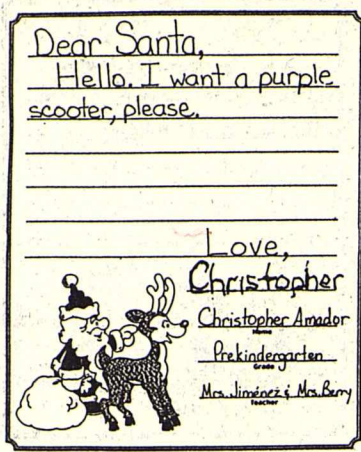 Dear Santa,
Hello. I want a purple
scooter, please.
Love,
Christopher
Christopher Amador
Name
Prekindergarten
Grade
Mrs. Jiménez & Mrs. Berry
Teacher